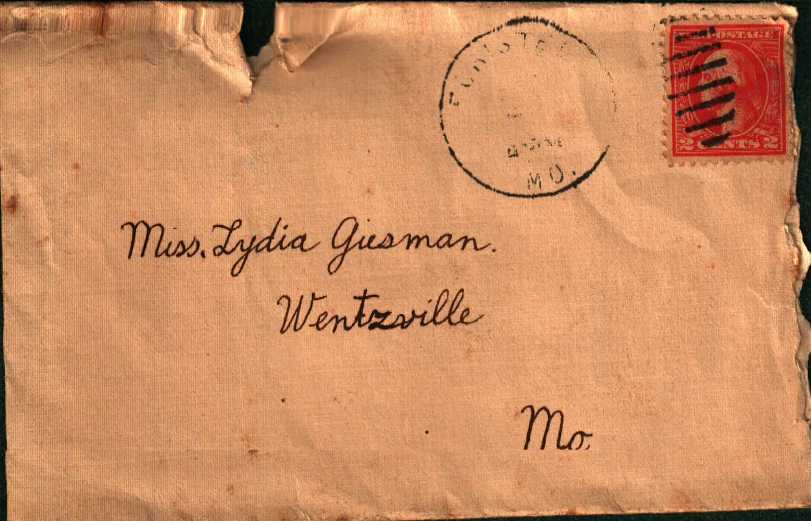 POSTAGE
2 CENTS 2
MO.
Miss. Lydia Giesman.
Wentzville
Mo.